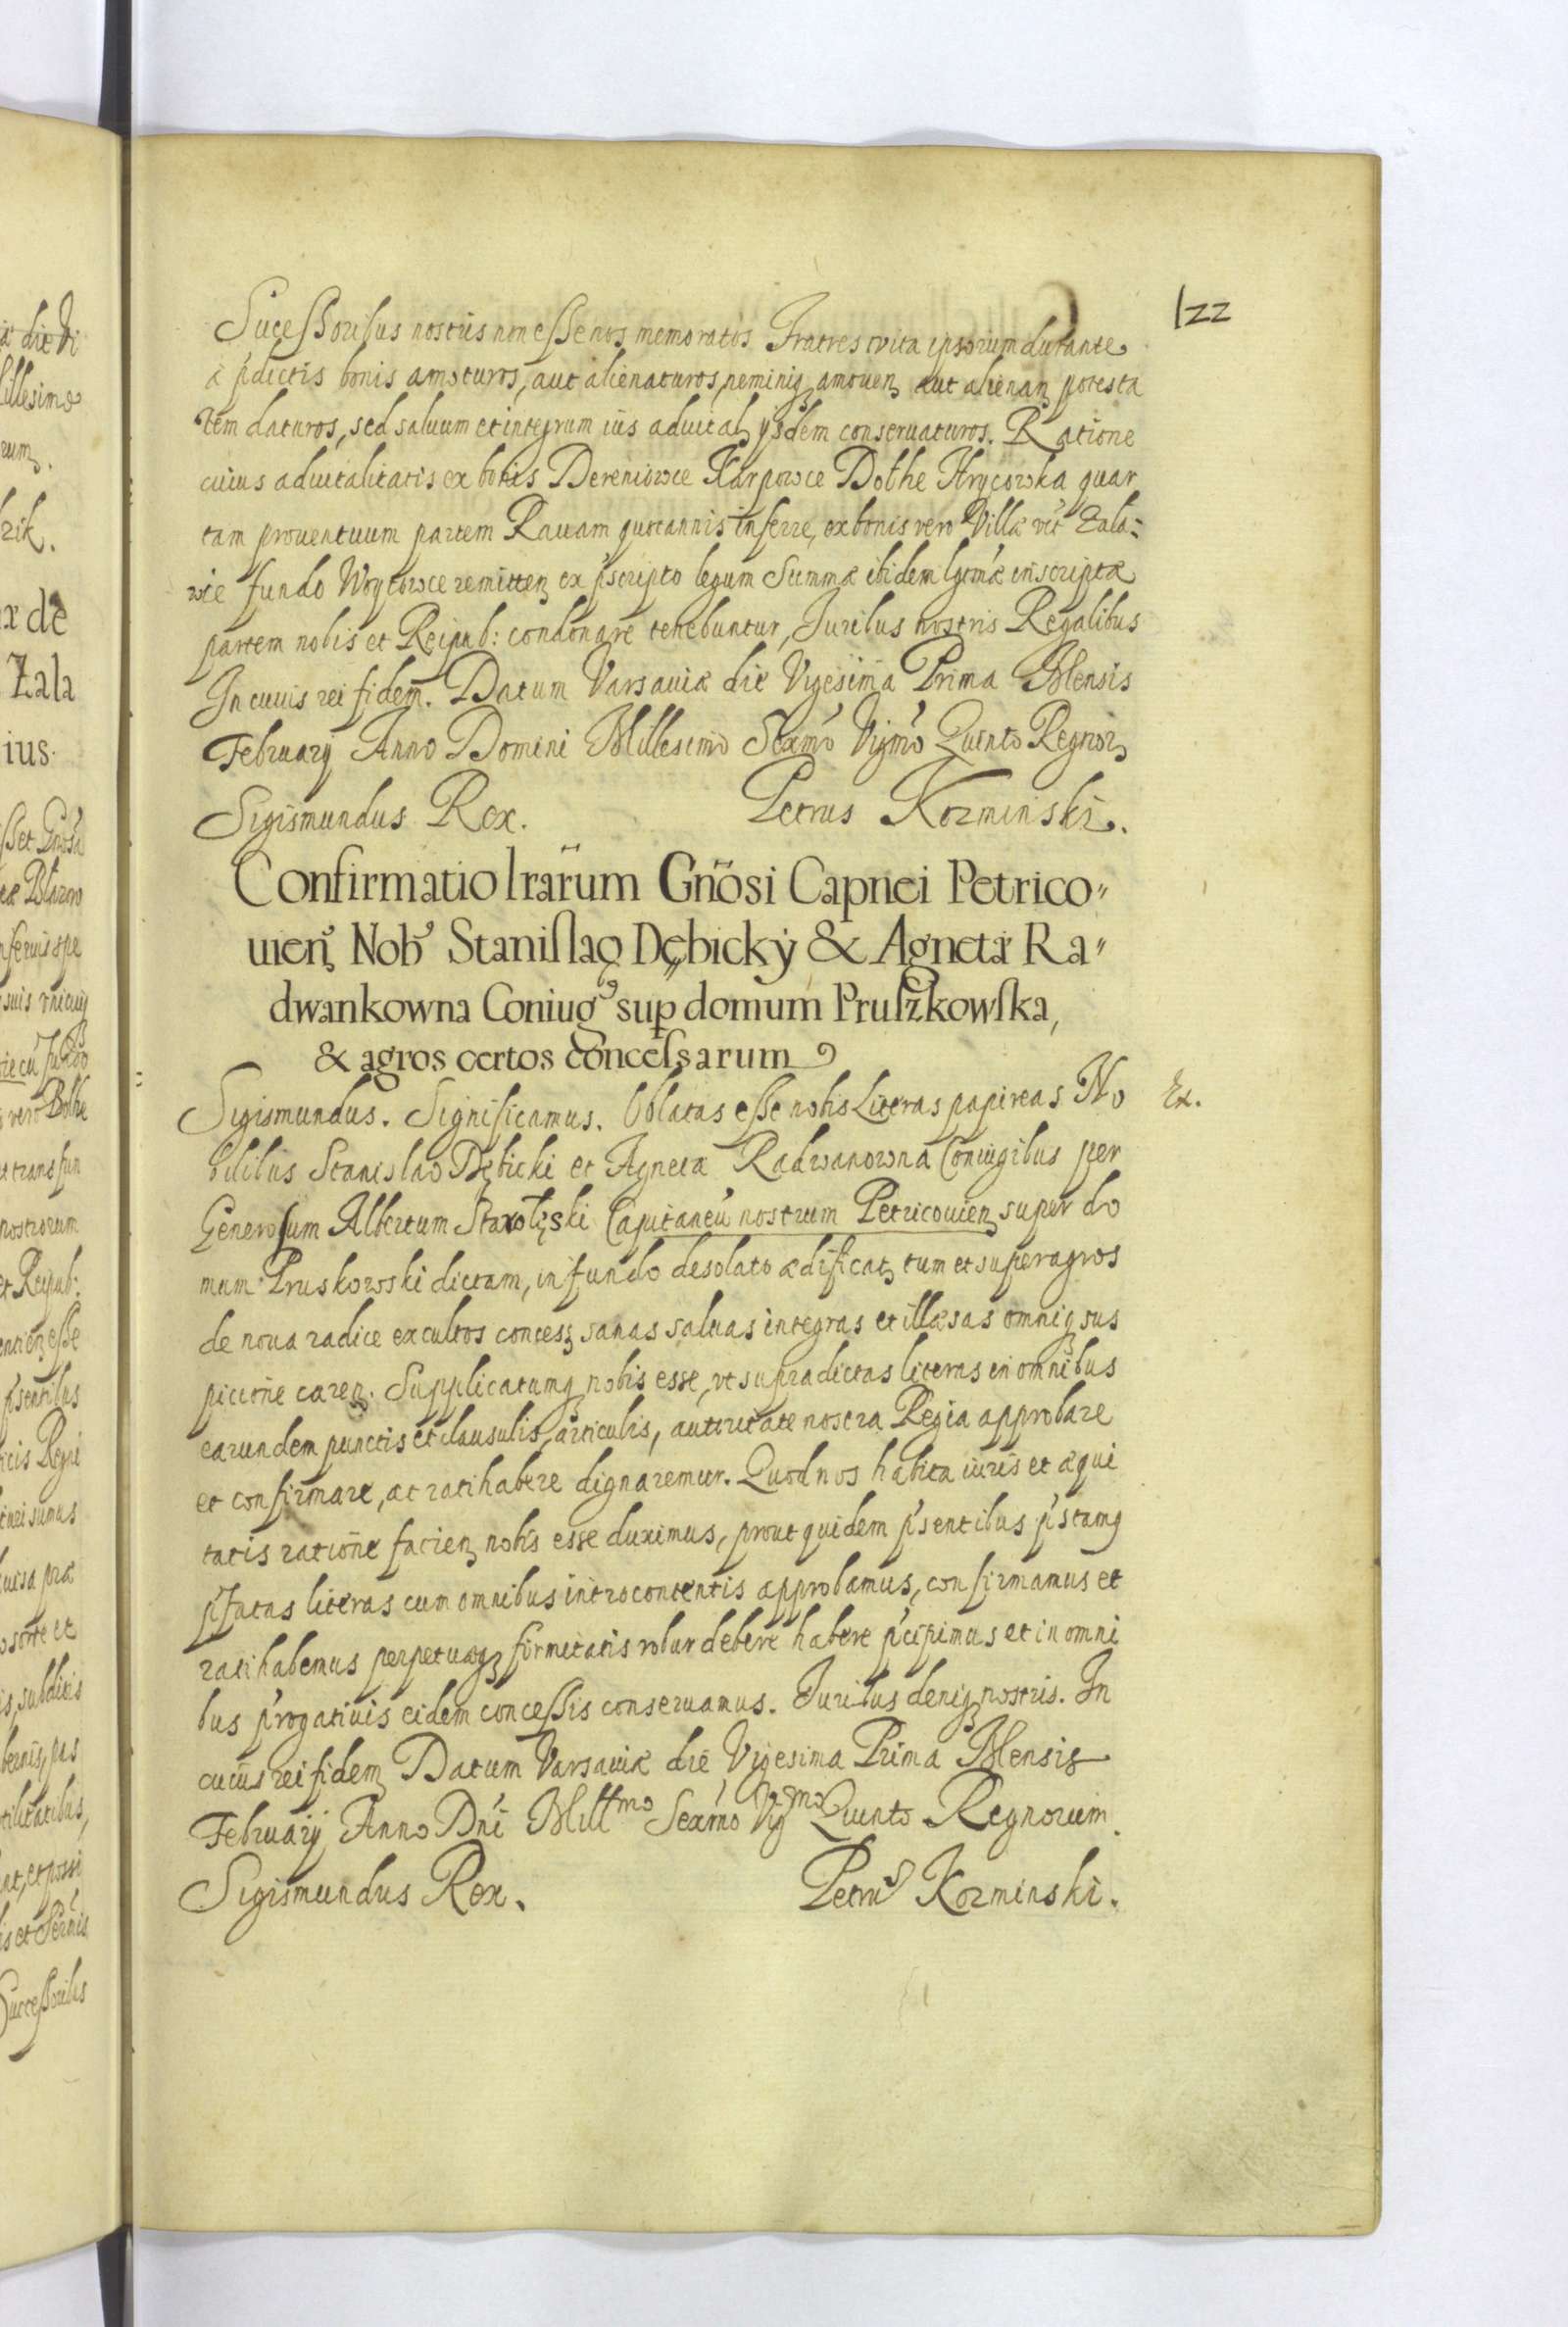 122
Sucessoribus nostris non esse nos memoratos Fratres vita ipsorum durante
á p̃dictis bonis amoturos, aut alienaturos, neminiq₃ amouen₃ aut alienan₃ potesta
tem daturos, sed saluum et integrum ius aduital₃ ysdem conseruaturos. Ratione
cuius aduitalitatis ex bonis Dereniowce Karpowce Dolhe Hrycowka quar
tam prouentuum partem Rauam quotannis inferre, ex bonis vero Villæ
wie fundo Woytowce remitten₃ ex p̃scripto legum Summæ ibidem inscriptæ
partem nobis et Reipub: condonare tenebuntur, Iuribus nostris Regalibus
In cuius rei fidem. Datum Varsauiæ die Vigesima Prima Mensis
February Anno Domini Millesimo Sexmo Vigmo Quinto Regnor₃
Sigismundus Rex. Petrus Kozminski.
Confirmatio lrarum Gnosi Capnei Petrico„
uien₃ Nob Stanislao Dębicky & Agnetæ Ra„
dwankowna Coniug sup domum Pruszkowska,
& agros certos concessarum
Sigismundus. Significamus. Oblatas esse nobis Literas papireas No
Ex.
bilibus Stanislao Dębicki et Agnetæ Radwanowna Coniugibus per
Generosum Albertum Capitaneũ nostrum Petricouien₃ super do
mum Pruskowski dictam, in fundo desolato ædificat₃ tum et super agros
de noua radice excultos concess₃ sanas saluas integras et illæsas omniq₃ sus
picione caren₃. Supplicatumq₃ nobis esse, vt supradictas literas in omnibus
earundem punctis et clausulis, articulis, autoritate nostra Regia approbare
et confirmare, ac ratihabere dignaremur. Quod nos habita iuris et æqui
tatis ratione facien₃ nobis esse duximus, prout quidem p̃sentibus
p̃fatas literas cum omnibus introcontentis approbamus, confirmamus et
ratihabemus perpetuæq₃ firmitatis robur debere habere p̃cipimus et in omni
bus p̃rogatiuis eidem concessis conseruamus. Iuribus deniq₃ nostris. In
cuius rei fidem₃ Datum Varsauiæ die Vigesima Prima Mensis
Februarij Anno Dni Millmo Sexmo Vigmo Quinto Regnorum.
Sigismundus Rex. Petrus Kozminski.